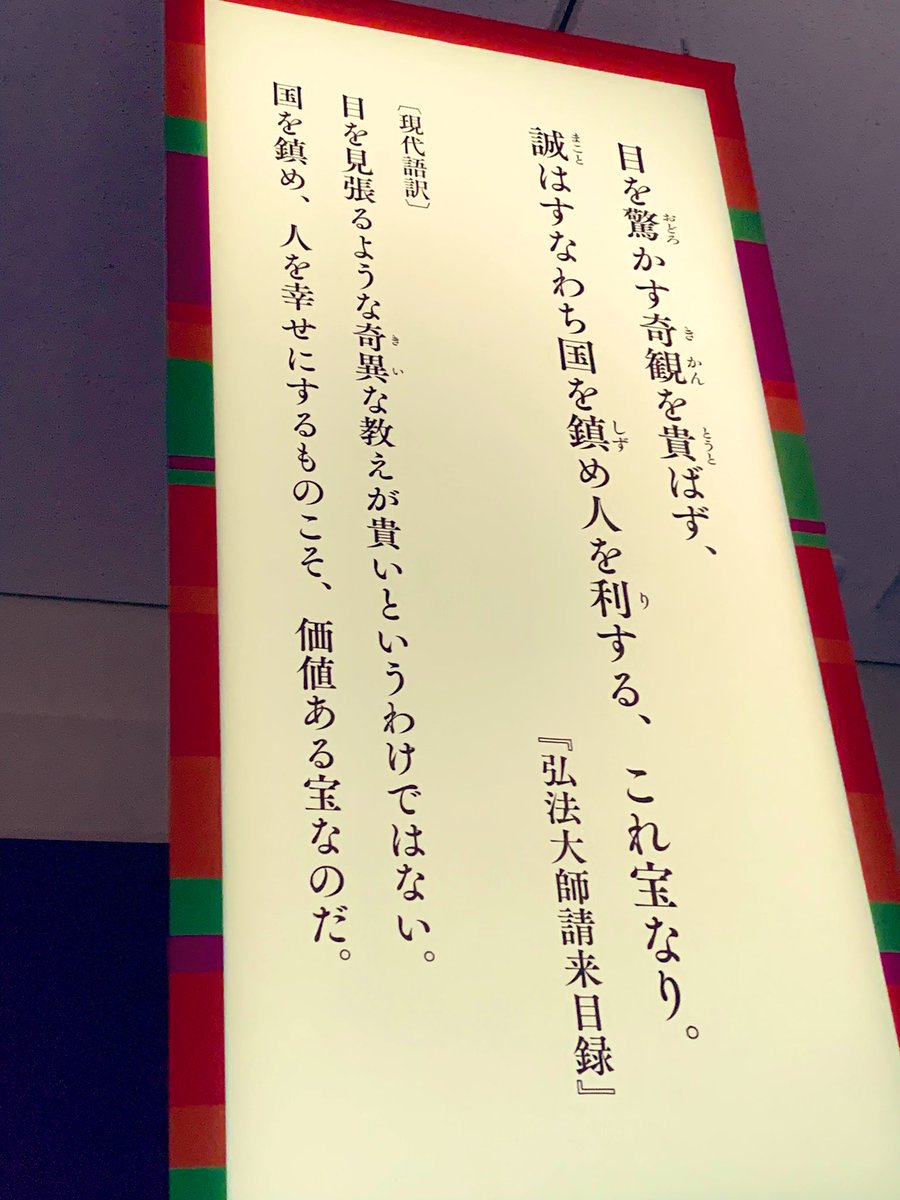 目を驚かす奇観を貴ばず、
誠はすなわち国を鎮め人を利する、これ宝なり。
『弘法大師請来目録』
〔現代語訳〕
目を見張るような奇異な教えが貴いというわけではない。
国を鎮め、人を幸せにするものこそ、価値ある宝なのだ。